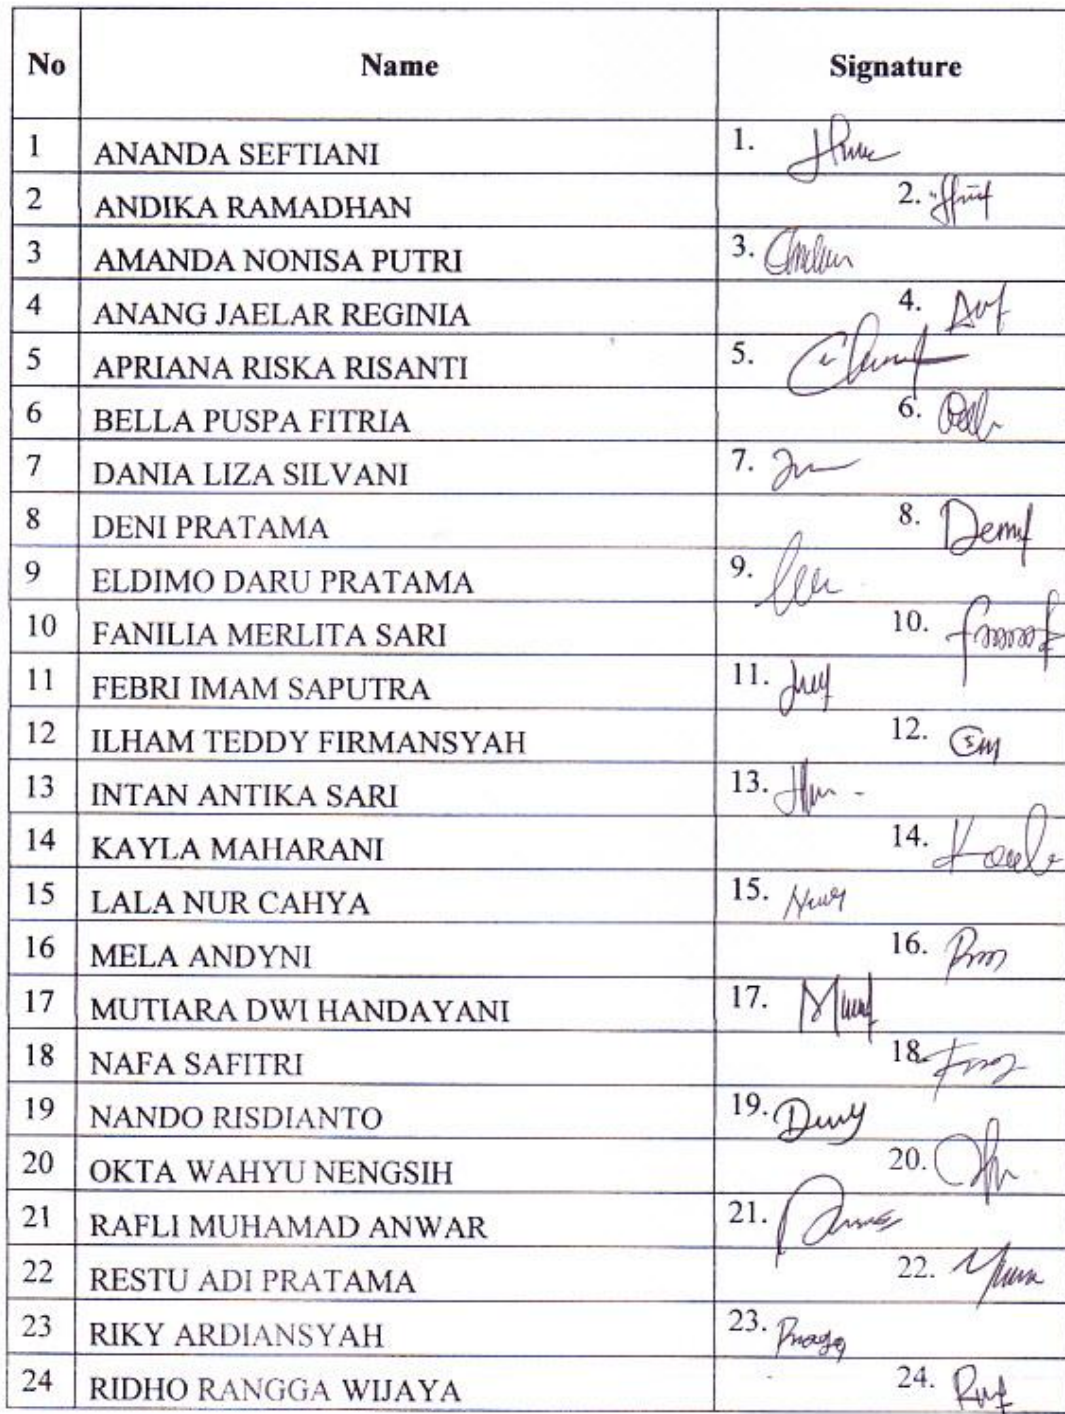 No Name Signature
1 ANANDA SEFTIANI 1.
2 ANDIKA RAMADHAN 2.
3 AMANDA NONISA PUTRI 3.
4 ANANG JAELAR REGINIA 4.
5 APRIANA RISKA RISANTI 5.
6 BELLA PUSPA FITRIA 6.
7 DANIA LIZA SILVANI 7.
8 DENI PRATAMA 8.
9 ELDIMO DARU PRATAMA 9.
10 FANILIA MERLITA SARI 10.
11 FEBRI IMAM SAPUTRA 11.
12 ILHAM TEDDY FIRMANSYAH 12.
13 INTAN ANTIKA SARI 13.
14 KAYLA MAHARANI 14.
15 LALA NUR CAHYA 15.
16 MELA ANDYNI 16.
17 MUTIARA DWI HANDAYANI 17.
18 NAFA SAFITRI 18.
19 NANDO RISDIANTO 19.
20 OKTA WAHYU NENGSIH 20.
21 RAFLI MUHAMAD ANWAR 21.
22 RESTU ADI PRATAMA 22.
23 RIKY ARDIANSYAH 23.
24 RIDHO RANGGA WIJAYA 24.